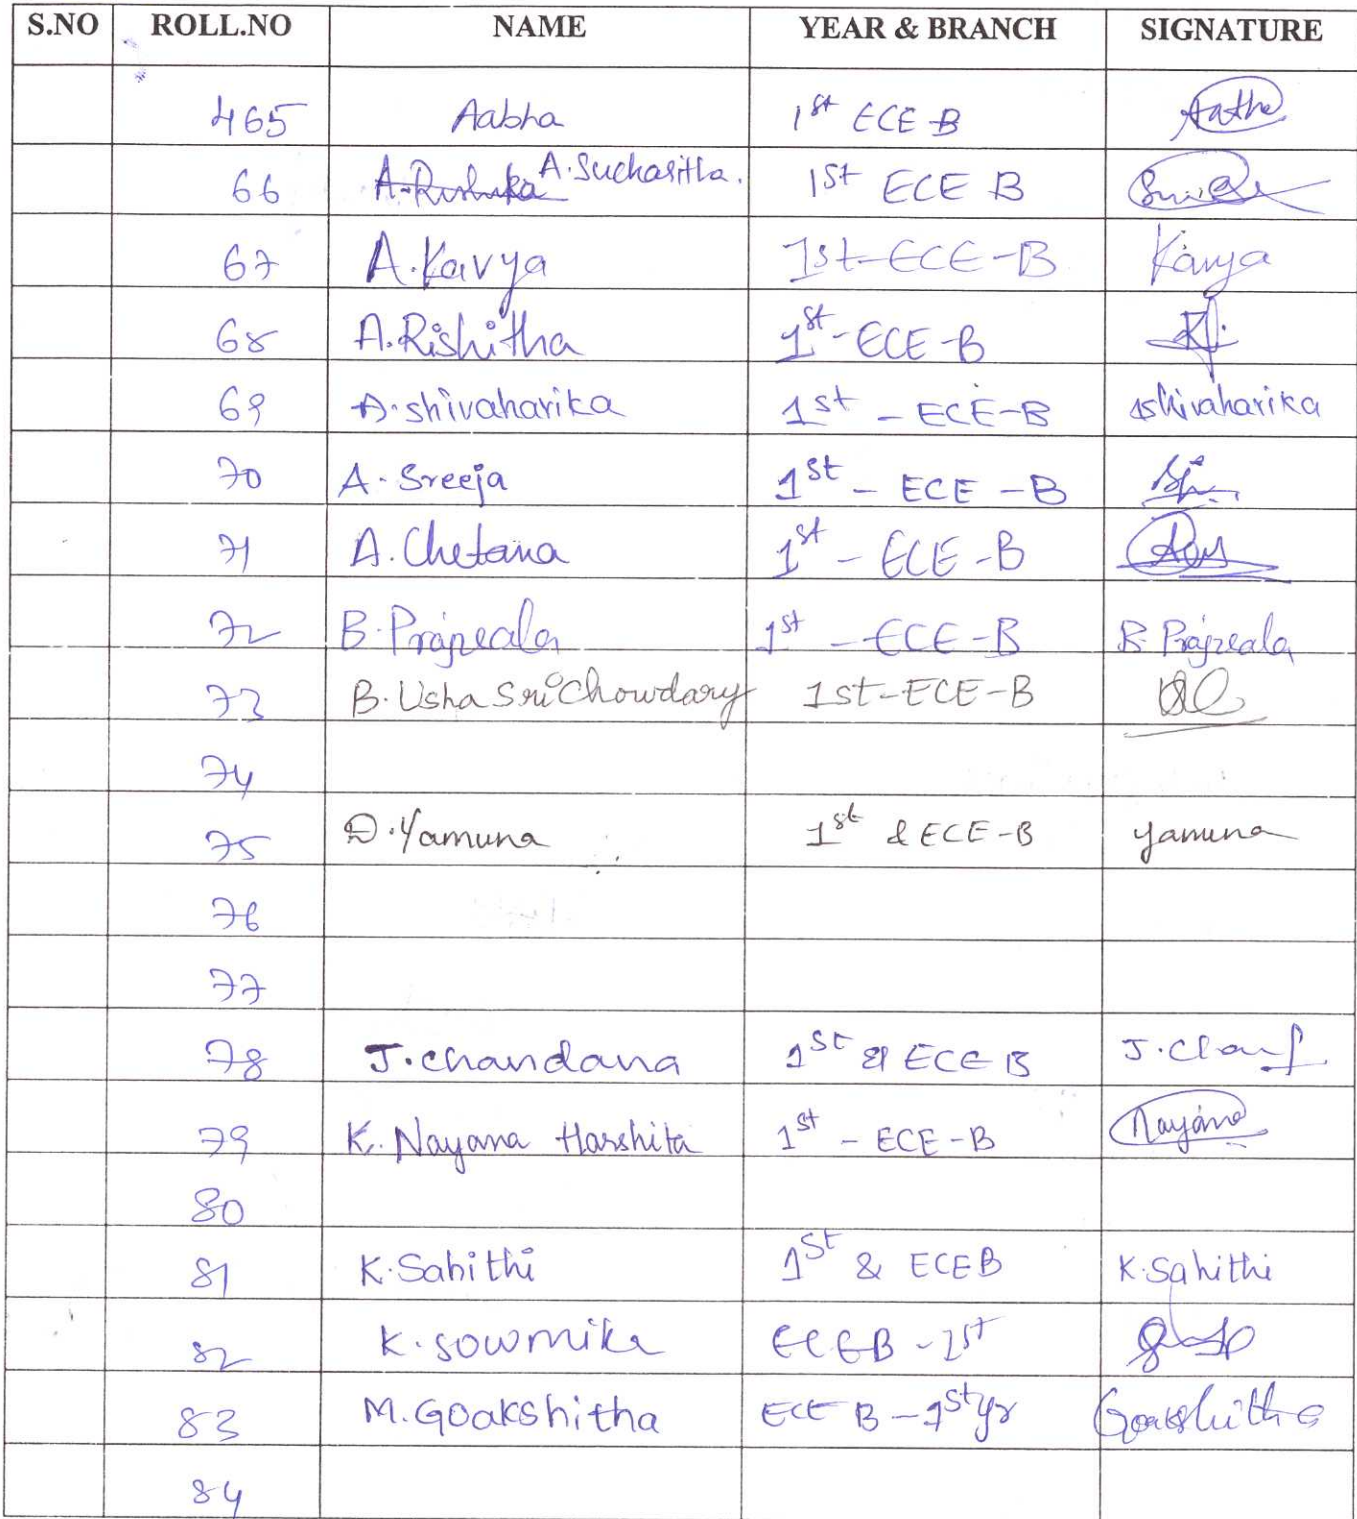 S.NO ROLL.NO NAME YEAR & BRANCH SIGNATURE
465 Aabha 1st ECE-B
66 A.Sucharitha. 1st ECE B
67 A.Kavya 1st-ECE-B Kavya
68 A.Rishitha 1st-ECE-B
69 A.shivaharika 1st - ECE-B Ashivaharika
70 A.Sreeja 1st - ECE-B
71 A.Chetana 1st - ECE-B
72 B. 1st - ECE-B B.
73 B.Usha Sri Chowdary 1st-ECE-B
74
75 D.Yamuna 1st & ECE-B yamuna
76
77
78 J.chandana 1st & ECE B
79 K.Nayana Harshita 1st - ECE-B Nayana
80
81 K.Sahithi 1st & ECEB K.Sahithi
82 K.sowmika ECEB-1st
83 M.Goakshitha ECE B-1st yr Goakshitha
84